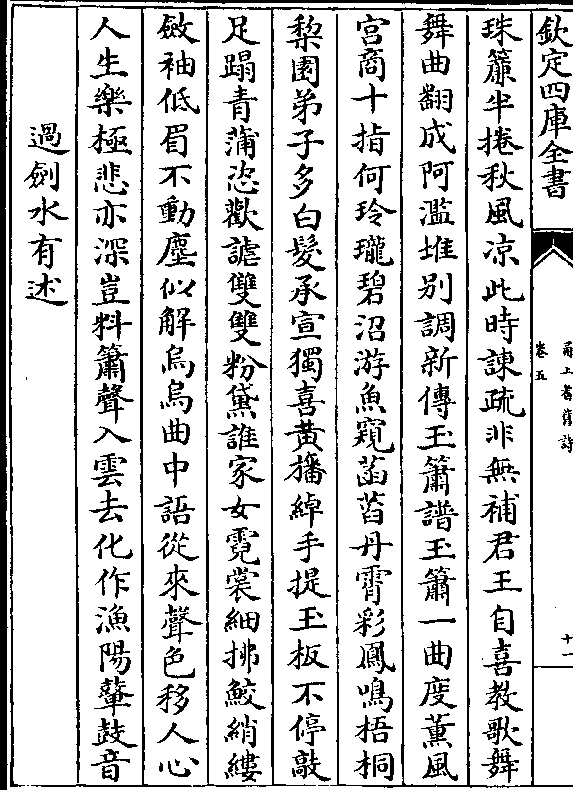 欽定四庫全書
甬上耆舊詩
卷五
十一
珠簾半捲秋風凉此時諫疏非無補君王自喜教歌舞
舞曲翻成阿濫堆别調新傳玉簫譜玉簫一曲度薰風
宮商十指何玲瓏碧沼游魚窺菡萏丹霄彩鳳鳴梧桐
梨園弟子多白髮承宣獨喜黃旛綽手提玉板不停敲
足蹋青蒲恣歡謔雙雙粉黛誰家女霓裳細拂鮫綃縷
斂袖低眉不動塵似解烏烏曲中語從來聲色移人心
人生樂極悲亦深豈料簫聲入雲去化作漁陽鼙鼓音
過劍水有述